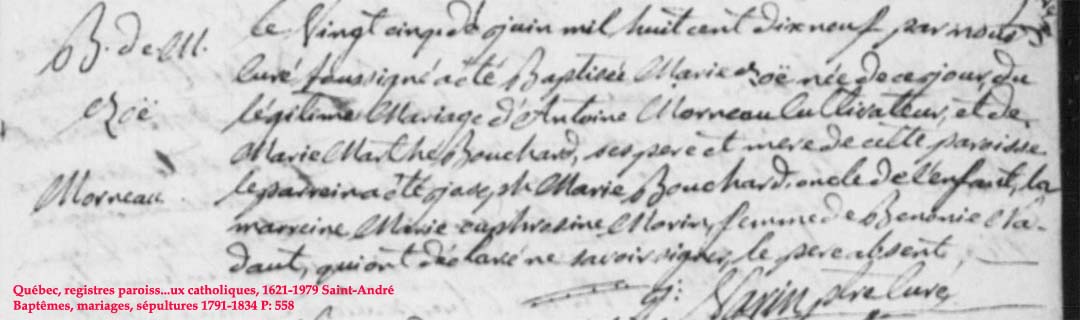 B. de M.
Zoë
Morneau
le Vingt cinq de juin mil huit cent dix neuf par nous
Curé soussigné a été Baptisée Marie Zoë née de ce jour, du
légitime Mariage d'Antoine Morneau Cultivateur, et de
Marie Marthe Bouchard, ses pere et mere de cette paroisse
le parrein a été Marie Bouchard, oncle de l'enfant, la
marreine Marie euphrosine Morin, femme de Benonie Na-
daut, qui ont déclaré ne savoir signer, le pere absent
Varin ptre Curé
Québec, registres paroiss...ux catholiques, 1621-1979 Saint-André
Baptêmes, mariages, sépultures 1791-1834 P: 558